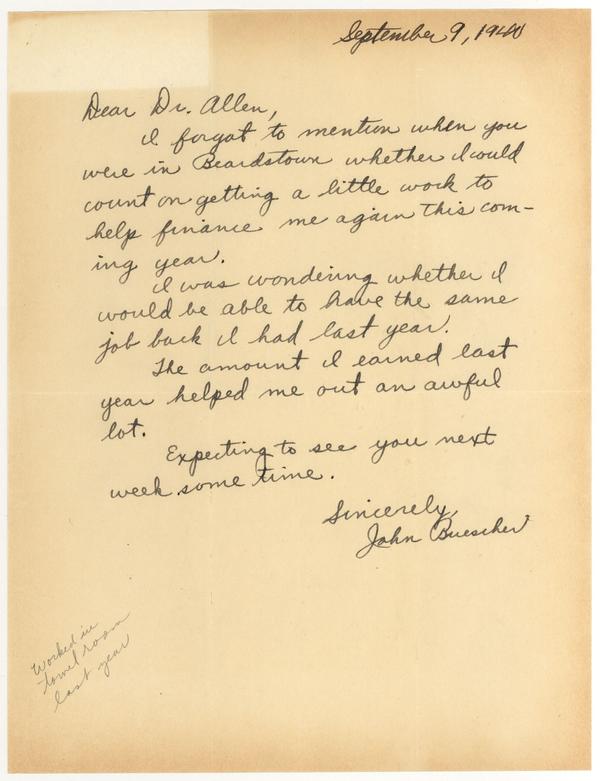 September 9, 1940
Dear Dr. Allen,
I forgot to mention when you
were in Beardstown whether I would
count on getting a little work to
help finance me again this com-
ing year.
I was wondering whether I
would be able to have the same
job back I had last year.
The amount I earned last
year helped me out an awful
lot.
Expecting to see you next
week some time.
Sincerely,
John Buescher
Worked in
towel room
last year